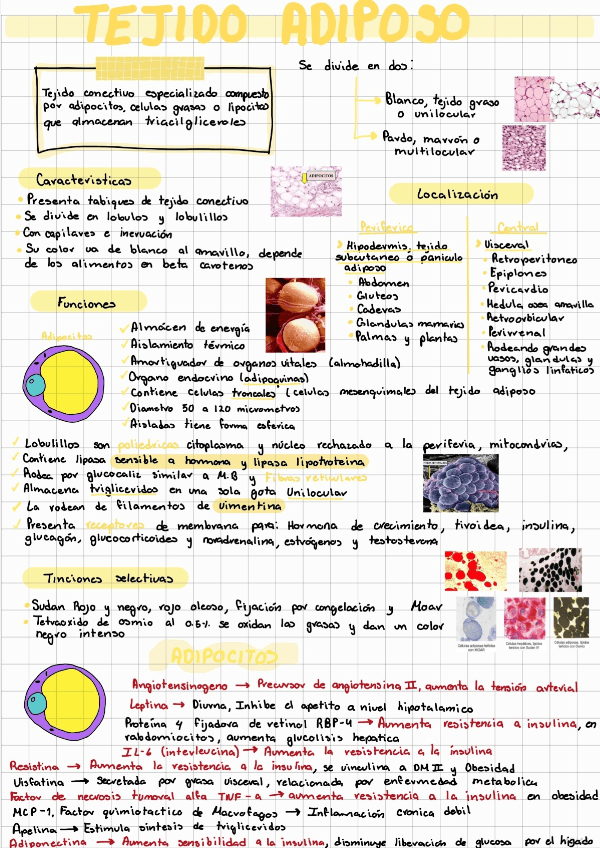 TEJIDO ADIPOSO
Tejido conectivo especializado compuesto
por adipocitos, celulas grasas o lipocitos
que almacenan triacilgliceroles
Se divide en dos:
Blanco, tejido graso
o unilocular
Pardo, marrón o
multilocular
Caracteristicas
Presenta tabiques de tejido conectivo
Se divide en lobulos y lobulillos
Con capilares e inervación
Su color va de blanco al amarillo, depende
de los alimentos en beta carotenos
ADIPOCITOS
Localización
Periferica
Hipodermis, tejido
subcutaneo o paniculo
adiposo
Abdomen
Gluteos
Caderas
Glandulas mamarias
Palmas y plantas
Central
Visceral
Retroperitoneo
Epiplones
Pericardio
Medula osea amarilla
Retroorbicular
Perirrenal
Rodeando grandes
vasos, glandulas y
ganglios linfaticos
Funciones
Adipocitos
Almácen de energía
Aislamiento térmico
Amortiguador de organos vitales (almohadilla)
Organo endocrino (adipoquinas)
Contiene celulas troncales (celulas mesenquimales del tejido adiposo
Diametro 50 a 120 micrometros
Aisladas tiene forma esferica
Lobulillos son poliedricas citoplasma y núcleo rechazado a la periferia, mitocondrias,
Contiene lipasa sensible a hormona y lipasa lipotroteina
Rodea por glucocalix similar a M.B y Fibras reticulares
Almacena trigliceridos en una sola gota Unilocular
La rodean de filamentos de vimentina
Presenta receptores de membrana para: Hormona de crecimiento, tiroidea, insulina,
glucagón, glucocorticoides y noradrenalina, estrógenos y testosterona
Tinciones selectivas
Sudan Rojo y negro, rojo oleoso, fijación por congelación y Moav
Tetraoxido de osmio al 0.5% se oxidan las grasas y dan un color
negro intenso
ADIPOCITOS
Angiotensinogeno → Precursor de angiotensina II, aumenta la tensión arterial
Leptina → Diurna, Inhibe el apetito a nivel hipotalamico
Proteina 4 fijadora de retinol RBP-4 → Aumenta resistencia a insulina, en
rabdomiocitos, aumenta glucolisis hepatica
IL-6 (interleucina) → Aumenta la resistencia a la insulina
Resistina → Aumenta la resistencia a la insulina, se vinculina a DM II y Obesidad
Visfatina → Secretada por grasa visceral, relacionada por enfermedad metabolica
Factor de necrosis tumoral alfa TNF-a → aumenta resistencia a la insulina en obesidad
MCP-1, Factor quimiotactico de Macrofagos → Inflamación cronica debil
Apelina → Estimula sintesis de trigliceridos
Adiponectina → Aumenta sensibilidad a la insulina, disminuye liberación de glucosa por el higado